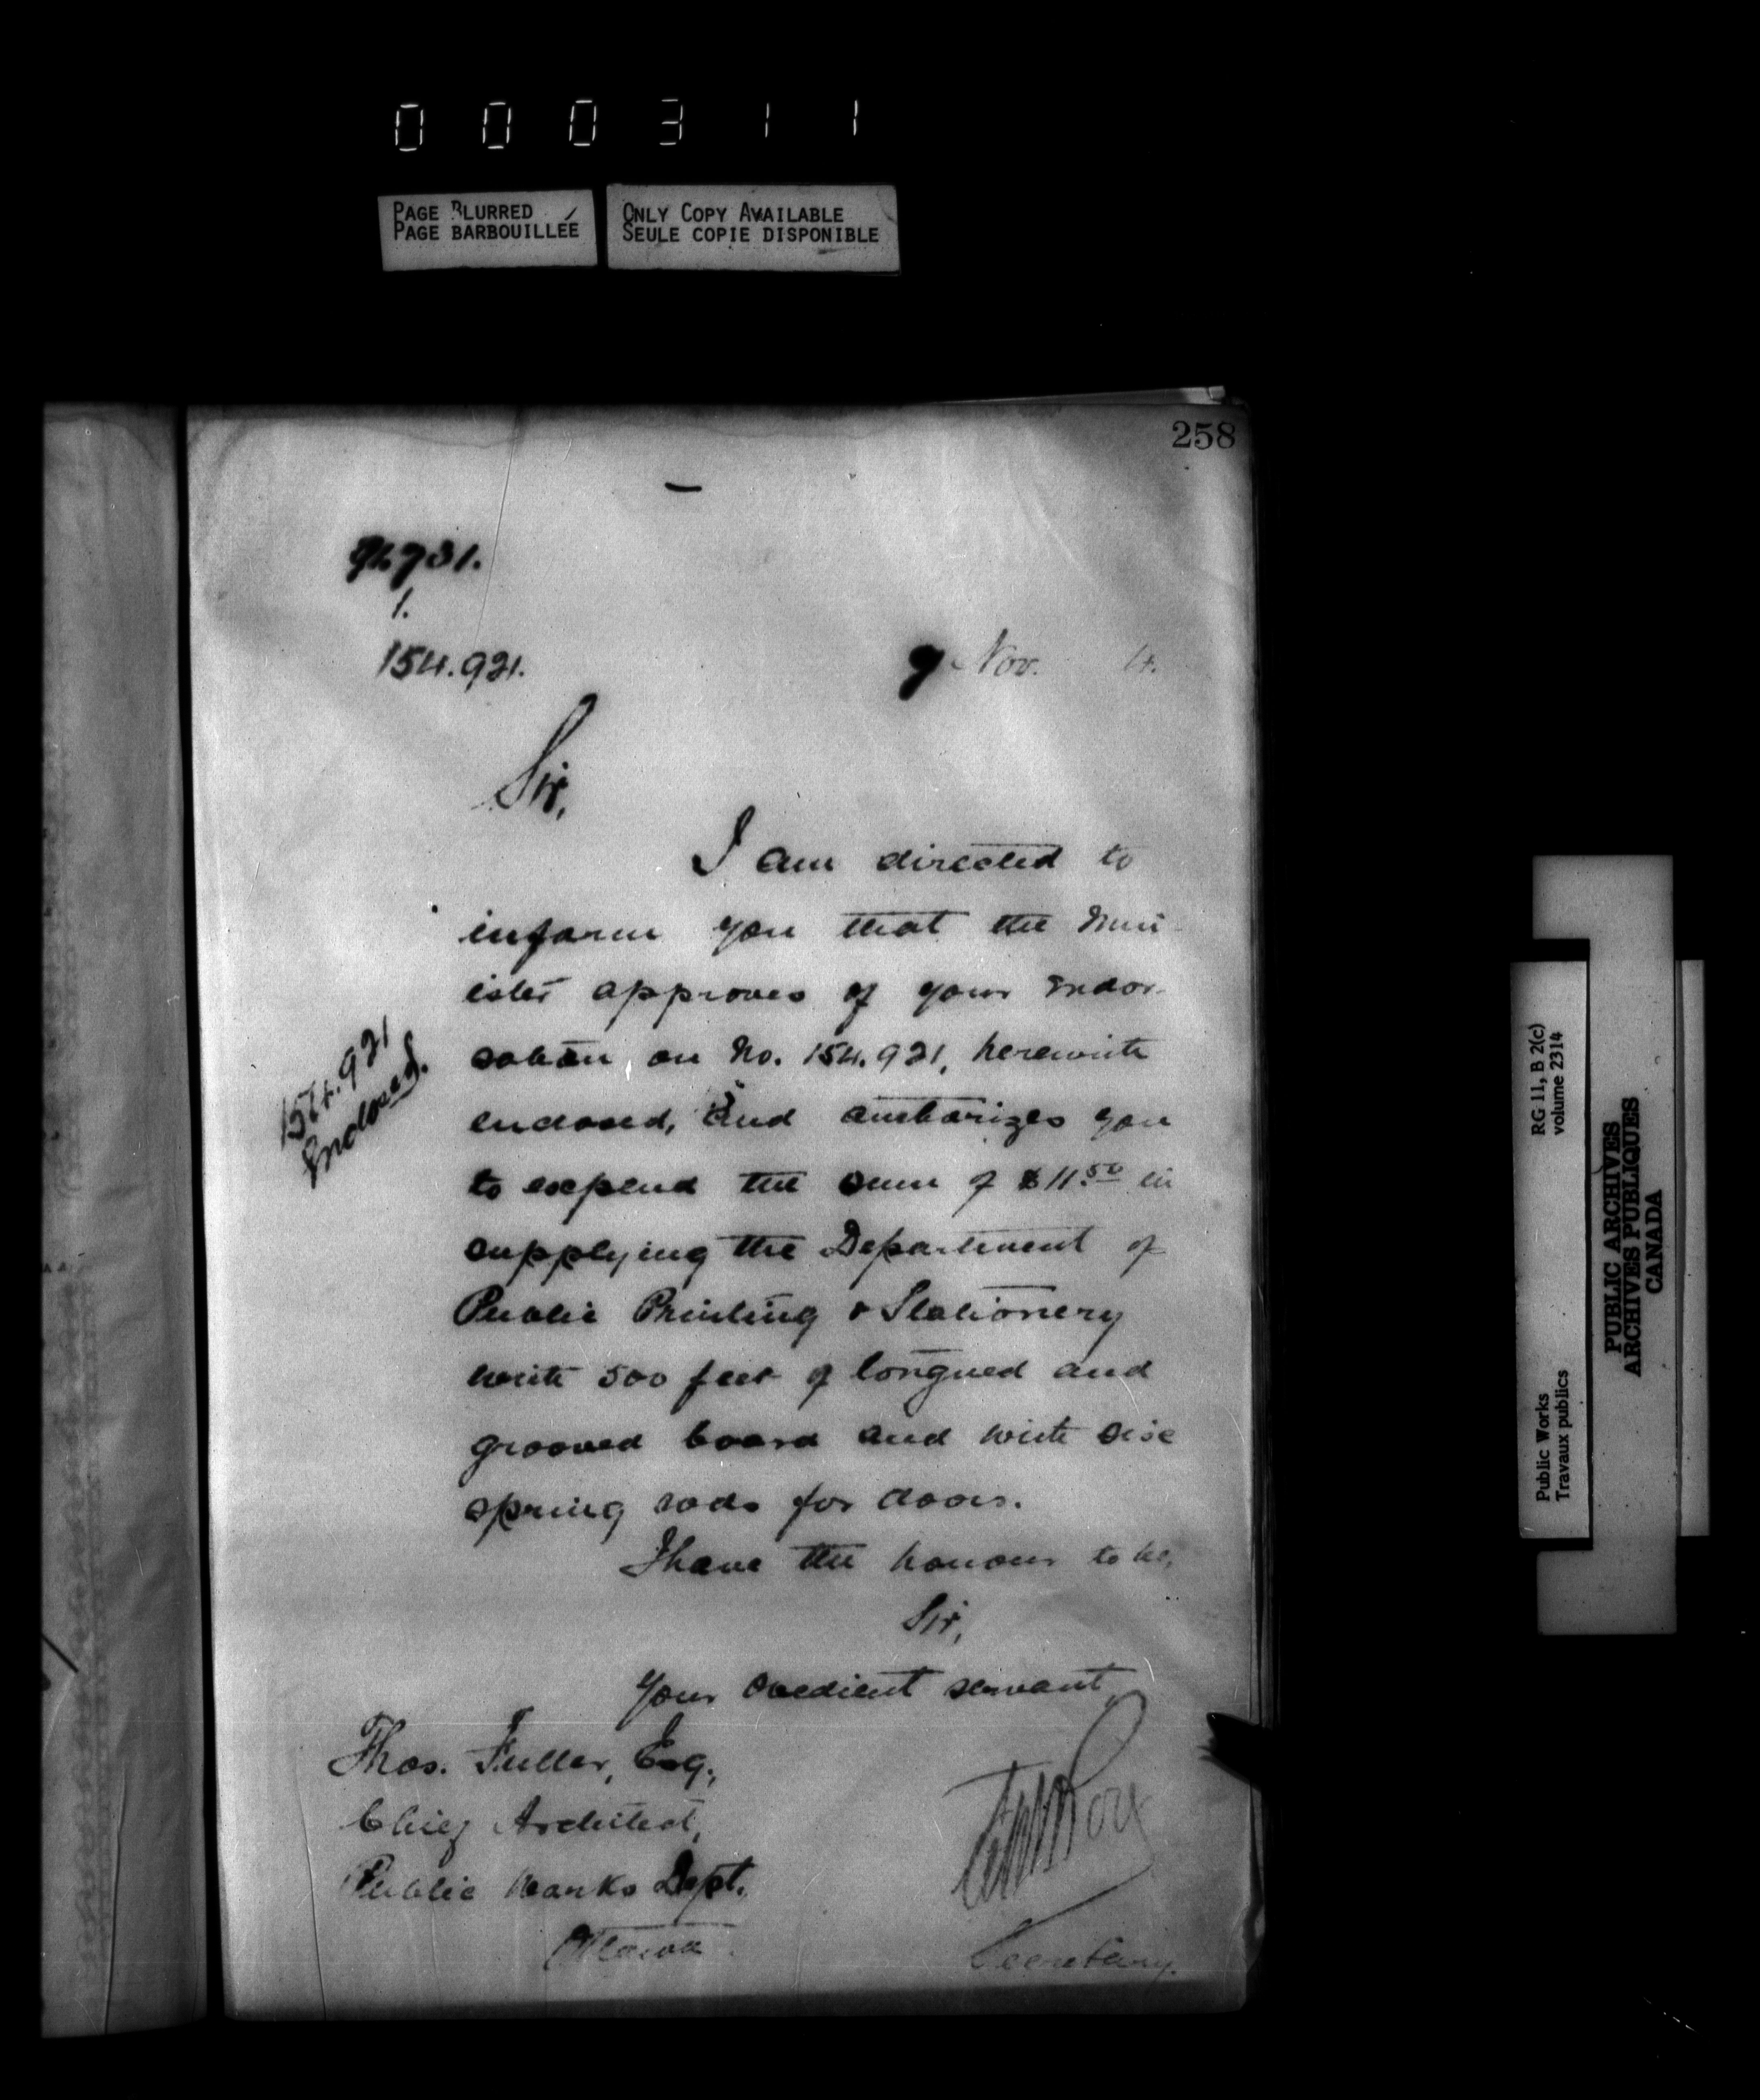 000311
PAGE BLURRED
PAGE BARBOUILLÉE
ONLY COPY AVAILABLE
SEULE COPIE DISPONIBLE
258
1.
154.921.
9 Nov. 4.
Sir,
I am directed to
inform you that the Min-
ister approves of your Endor-
sation, on No. 154.921, herewith
enclosed, and authorizes you
to expend the sum of $11.50 in
supplying the Department of
Public Printing & Stationery
with 500 feet of tongued and
grooved board and with six
spring rods for doors.
154.921
Enclosed.
I have the honour to be,
Sir,
Your obedient servant,
Thos. Fuller, Esq.,
Chief Architect,
Public Works Dept.
Ottawa.
Secretary.
Public Works
Travaux publics
RG 11, B 2(c)
volume 2314
PUBLIC ARCHIVES
ARCHIVES PUBLIQUES
CANADA